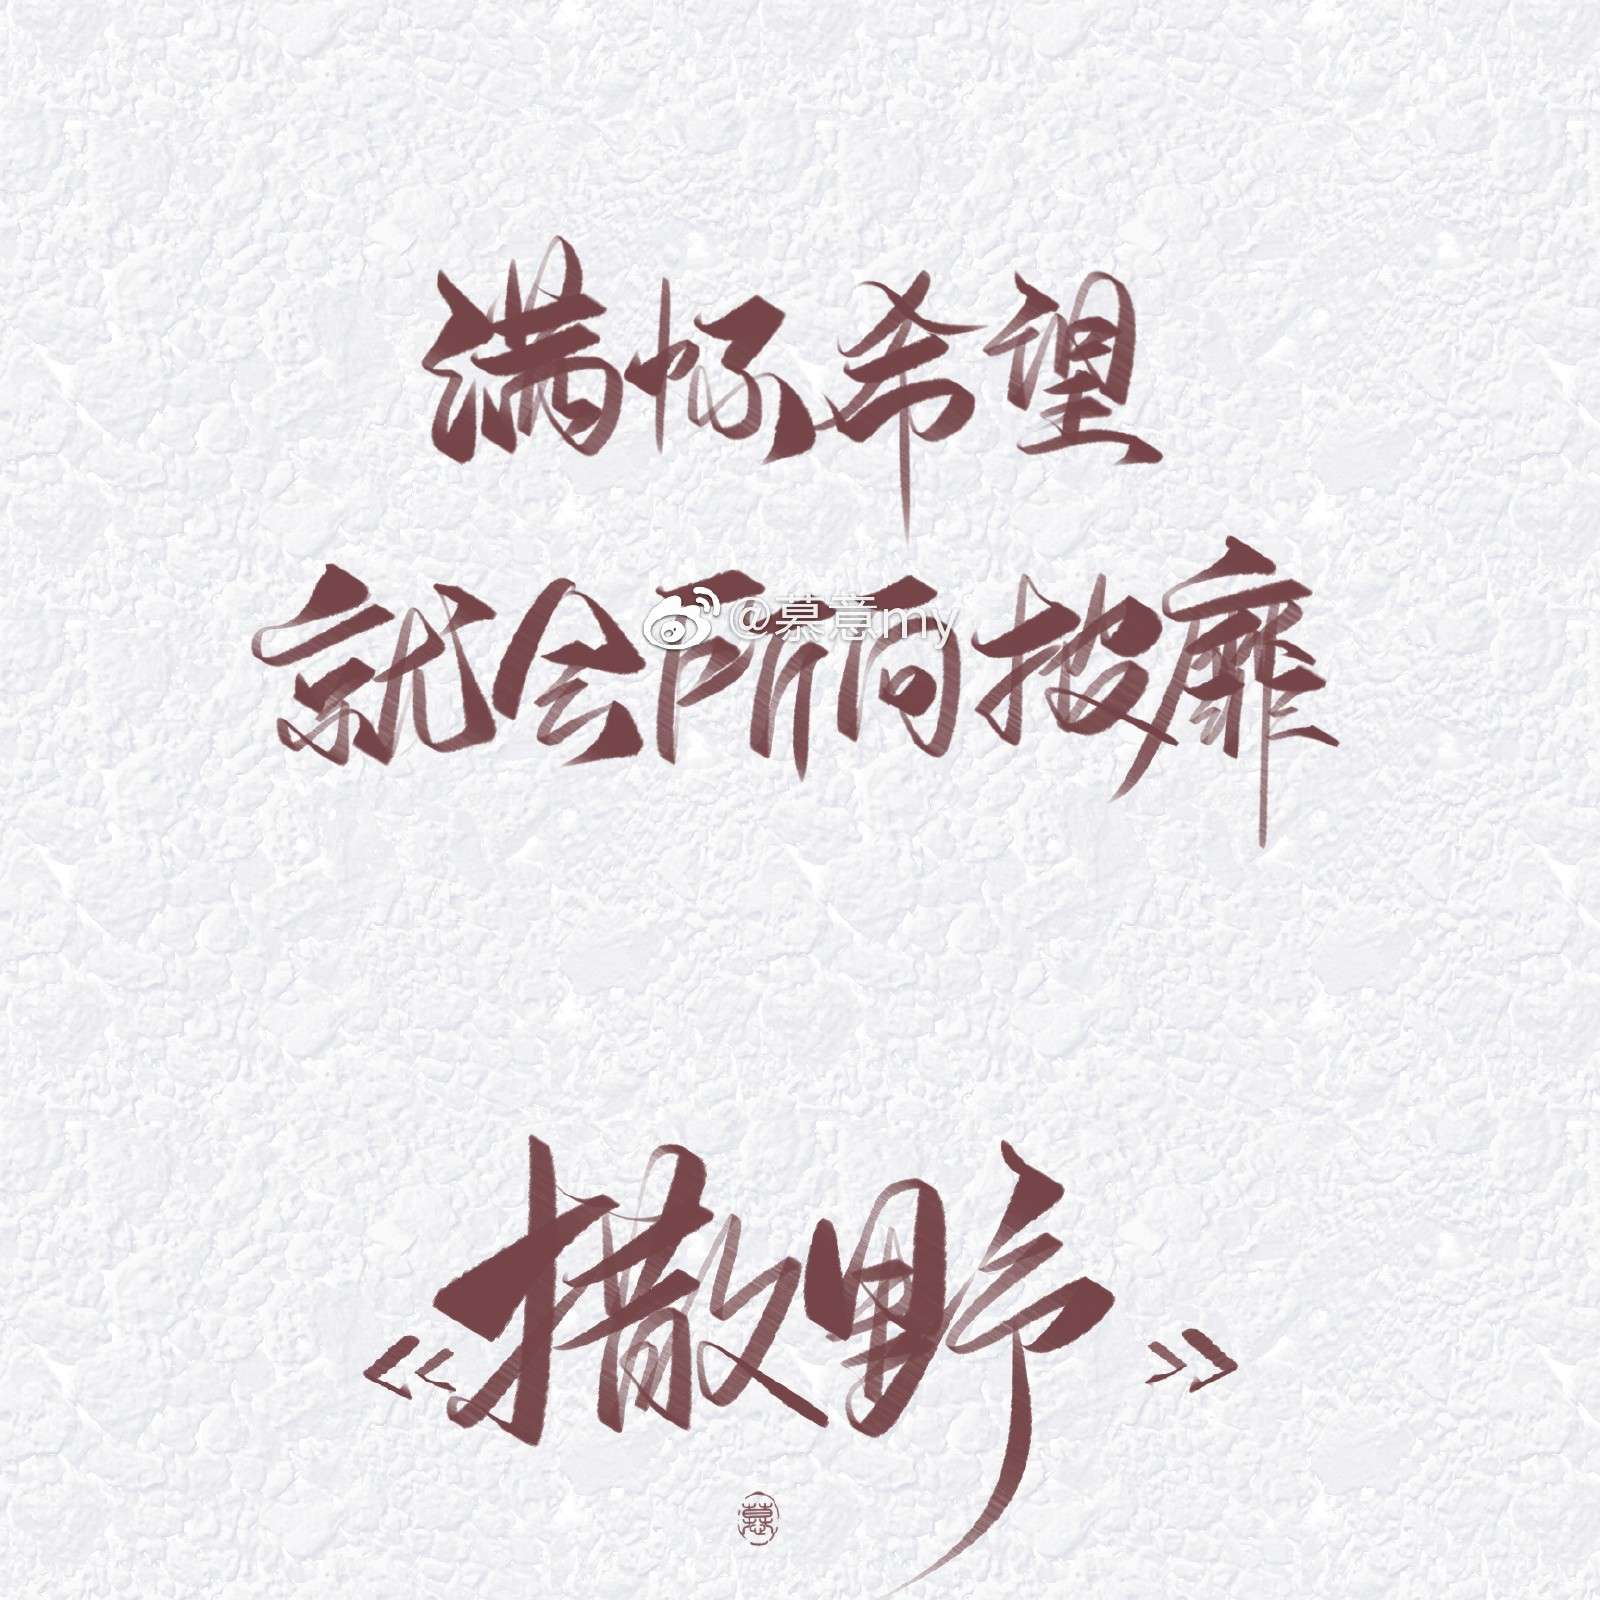 满怀希望
就会所向披靡
@慕意my
《撒野》
慕